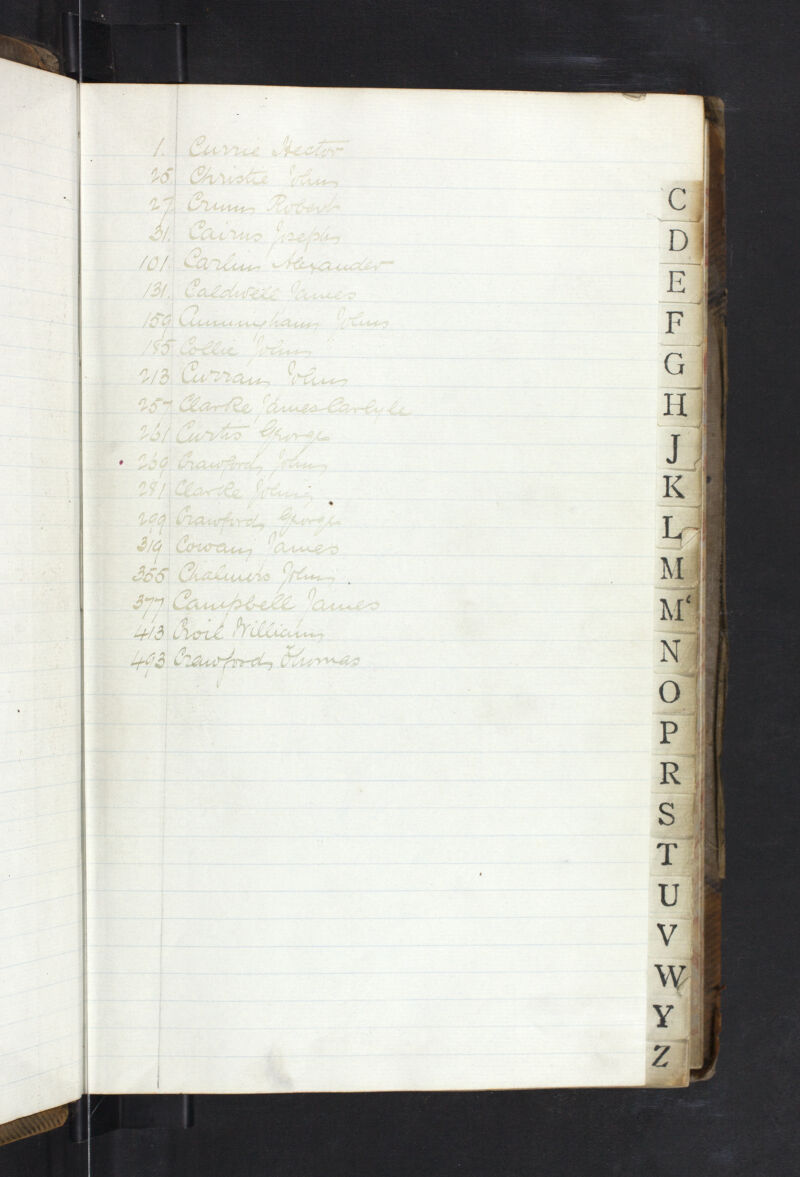 1. Currie Hector
25 Christie John
27. Crum Robert
31. Cairns Joseph
101. Carlin Alexander
131. Caldwell James
159 Cunningham John
185 Collie John
213 Curran John
257 Clarke James Carlyle
261 Curtis George
269 Crawford John
281 Clarke John
299 Crawford George
319 Cowan James
355 Chalmers John
377 Campbell James
413 Croil William
493 Crawford Thomas
C
D
E
F
G
H
J
K
L
M
M‘
N
O
P
R
S
T
U
V
W
Y
Z